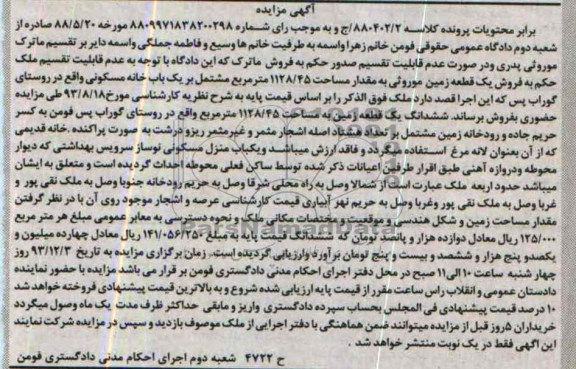 آگهی مزایده
برابر محتویات پرونده کلاسه ۸۸۰۴۰۲/۲/ج و به موجب رای شماره ۸۸۰۹۹۷۱۸۳۸۲۰۰۲۹۸ مورخه ۸۸/۵/۲۰ صادره از
شعبه دوم دادگاه عمومی حقوقی فومن خانم زهرا واسمه به طرفیت خانم ها وسیع و فاطمه جملگی واسمه دایر بر تقسیم ماترک
موروثی پدری ودر صورت عدم قابلیت تقسیم صدور حکم به فروش ماترک که این دادگاه با توجه به عدم قابلیت تقسیم ملک
حکم به فروش یک قطعه زمین موروثی به مقدار مساحت ۱۱۲۸/۴۵ مترمربع مشتمل بر یک باب خانه مسکونی واقع در روستای
گوراب پس که این اجرا قصد دارد ملک فوق الذکر را بر اساس قیمت پایه به شرح نظریه کارشناسی مورخ ۹۳/۸/۱۸ طی مزایده
حضوری بفروش برساند. ششدانگ یک قطعه زمین به مساحت ۱۱۲۸/۴۵ مترمربع واقع در روستای گوراب پس فومن به کسر
حریم جاده و رودخانه زمین مشتمل بر تعداد هشتاد اصله اشجار مثمر و غیرمثمر ریزو درشت به صورت پراکنده .خانه قدیمی
که از آن بعنوان لانه مرغ استفاده میگردد و فاقد ارزش میباشد ویکباب منزل مسکونی نوساز سرویس بهداشتی که دیوار
محوطه ودروازه آهنی طبق اقرار طرفین اعیانات ذکر شده توسط ساکن فعلی محوطه احداث گردیده است و متعلق به ایشان
میباشد حدود اربعه ملک عبارت است از شمالا وصل به راه محلی شرقا وصل به حریم رودخانه جنوبا وصل به ملک نقی پور و
غربا وصل به ملک نقی پور وغربا وصل به حریم نهر آبیاری قیمت کارشناسی عرصه و اشجار موجود روی آن با در نظر گرفتن
مقدار مساحت زمین و شکل هندسی و موقعیت و مختصات مکانی ملک و نحوه دسترسی به معابر عمومی مبلغ هر متر مربع
۱۲۵/۰۰۰ ریال معادل دوازده هزار و پانصد تومان که ششدانگ قیمت پایه به مبلغ ۱۴۱/۰۵۶/۲۵۰ ریال معادل چهارده میلیون و
یکصدو پنج هزار و ششصد و بیست و پنج تومان برآورد وارزیابی گردیده است. زمان برگزاری مزایده به تاریخ ۹۳/۱۲/۳ روز
چهار شنبه ساعت ۱۰ الی ۱۱ صبح در محل دفتر اجرای احکام مدنی دادگستری فومن بر قرار می باشد مزایده با حضور نماینده
دادستان عمومی و انقلاب راس ساعت مقرر از قیمت پایه ارزیابی شده شروع و به بالاترین قیمت پیشنهادی فروخته خواهد شد
۱۰ درصد قیمت پیشنهادی فی المجلس بحساب سپرده دادگستری واریز و مابقی حداکثر ظرف مدت یک ماه وصول میگردد
خریداران ۵روز قبل از مزایده میتوانند ضمن هماهنگی با دفتر اجرایی از ملک موصوف بازدید و سپس در مزایده شرکت نمایند
این اگهی فقط در یک نوبت منتشر خواهد شد .
ح ۴۷۲۲ شعبه دوم اجرای احکام مدنی دادگستری فومن